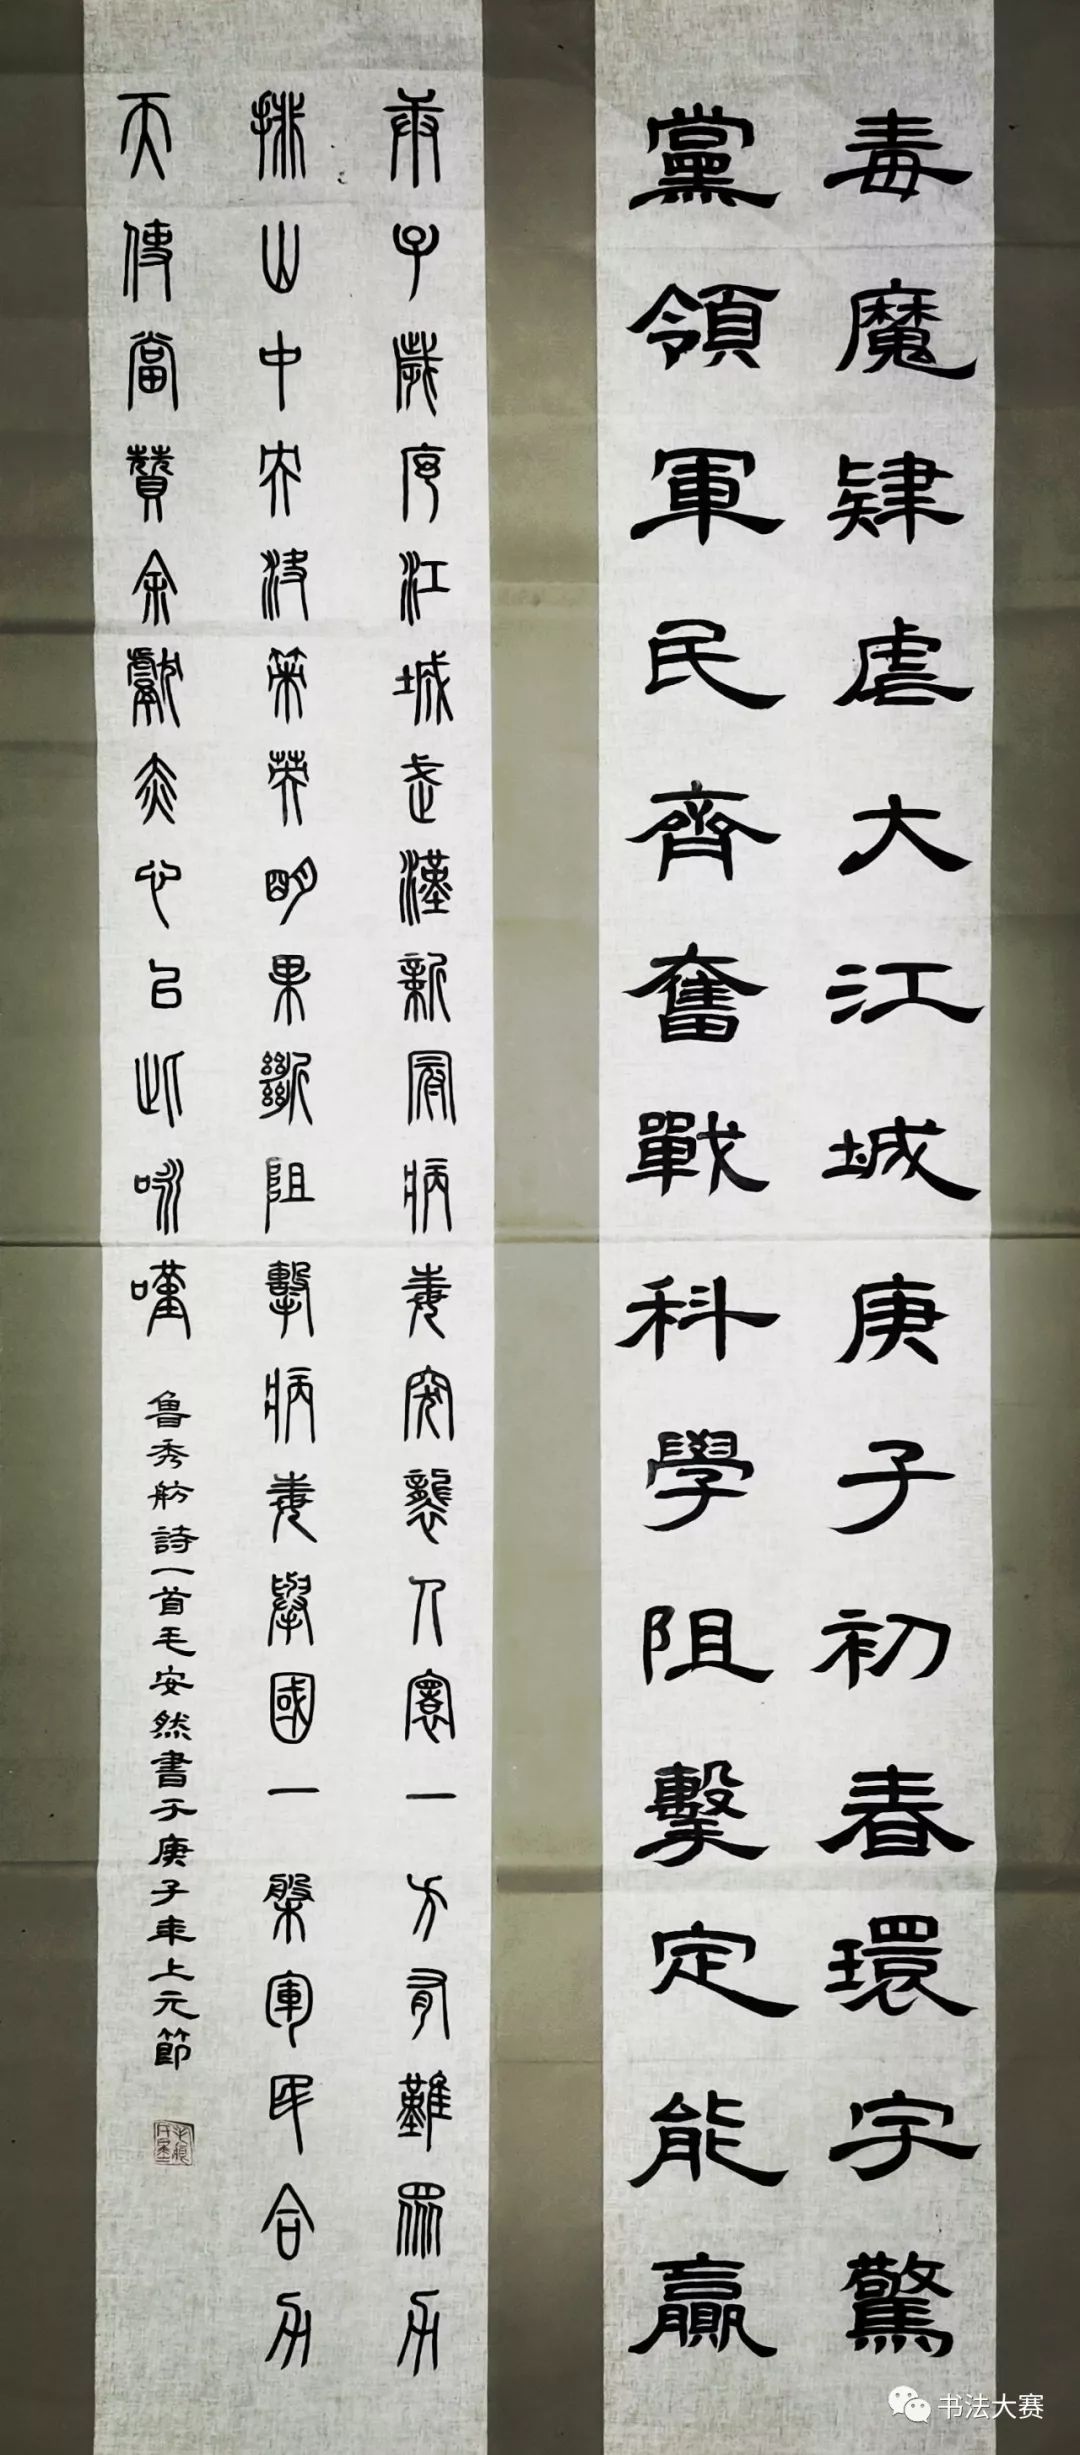 毒魔肆虐大江城庚子初春環宇驚
黨領軍民齊奮戰科學阻擊定能贏
庚子歲序江城武漢新冠病毒突襲人寰一方有難眾力
排山中央決策英明果斷阻擊病毒舉國一盤軍民合力
天使當贊余獻赤心以此咏嘆
魯秀舫詩一首毛安然書于庚子年上元節
书法大赛